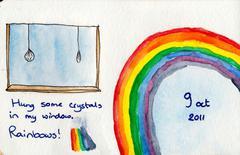 Hung some crystals
in my window.
Rainbows!
9 oct
2011